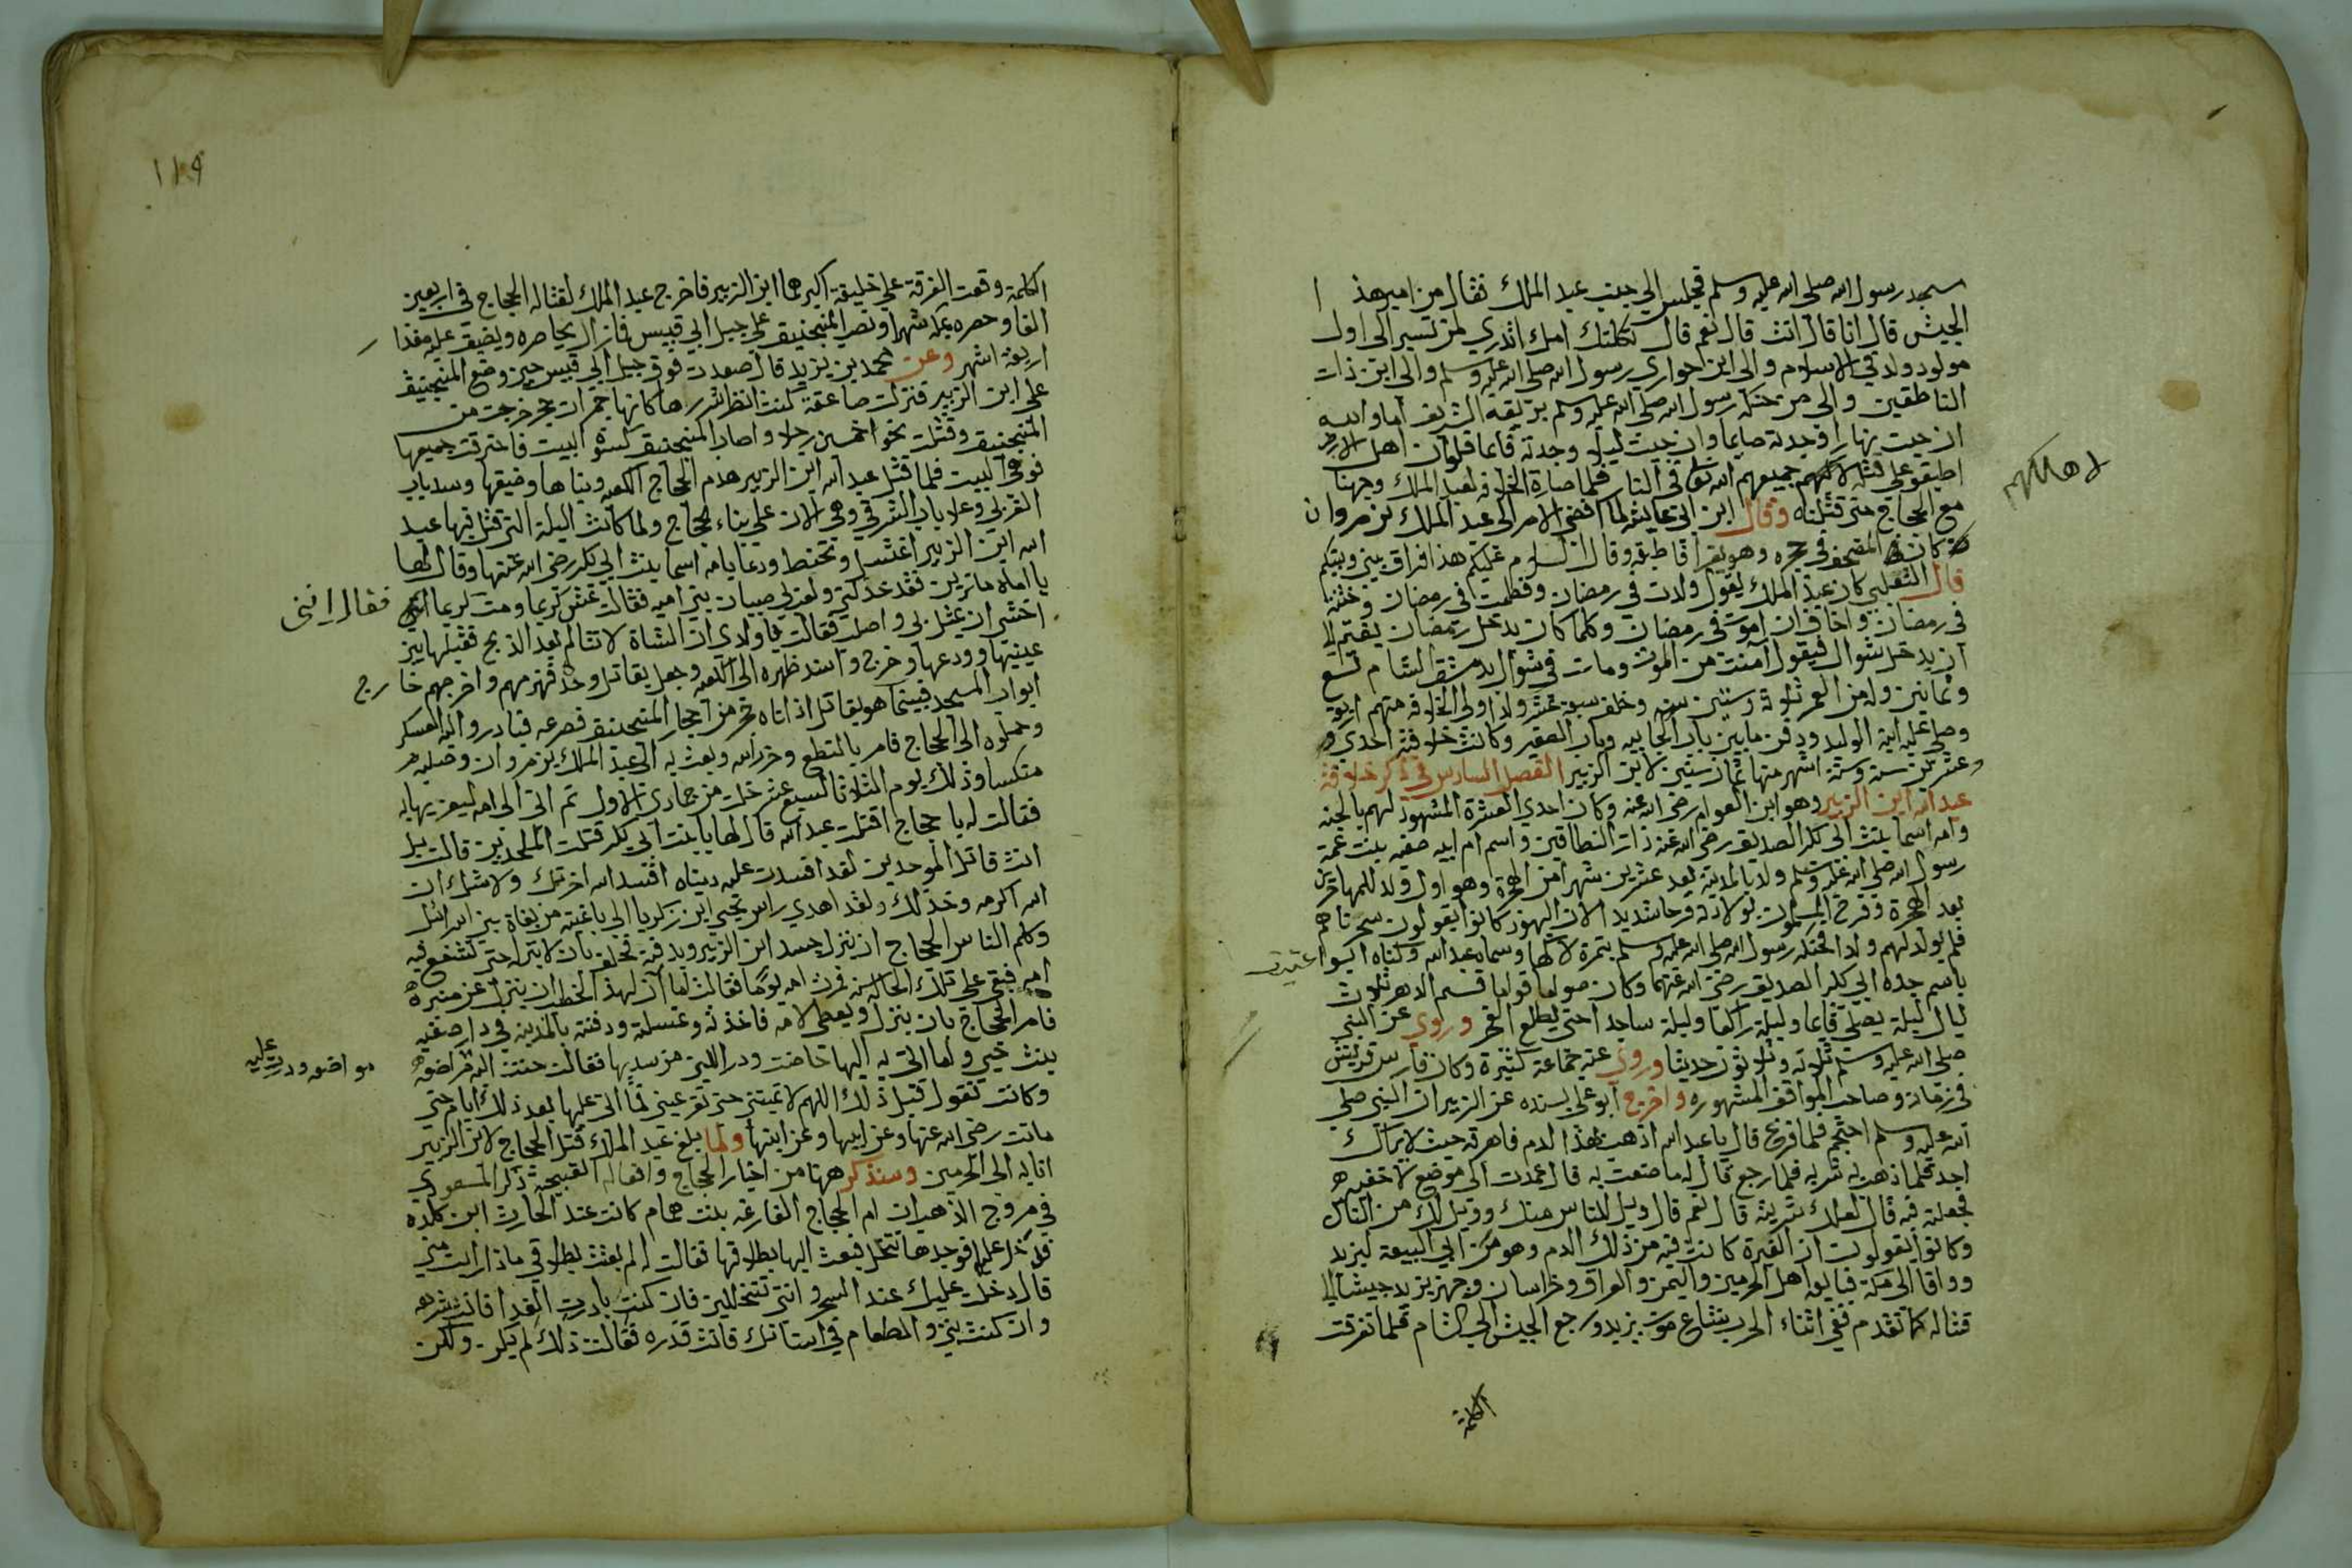 مسجد رسول الله صلى الله عليه وسلم فجلس الي جنب عبد الملك فقال من امير هذا
الجيش قال انا قال انت قال نعم قال ثكلتك امك اتدري لمن تسير الى اول
مولود ولد في الاسلام والى ابن حواري رسول الله صلى الله عليه وسلم والى ابن ذات
النطاقين والى من حنكه رسول الله صلى الله عليه وسلم بريقه الشريف اما والله
ان جيت نهارا وجدته صايما وان جيت ليلا وجدته قايما فلو ان اهل الارض
اطبقو على قتله لاكبهم جميعهم الله تعالى في النار فلما صارة الخلافه لعبد الملك وجهنا
لاهلكهم
مع الحجاج حتى قتلناه وقال ابن ابي عايشه لما افضى الامر الى عبد الملك بن مروان
كان المصحف في حجره وهو يقرا فاطبقه وقال السلام عليكم هذا فراق بيني وبينكم
قال الثعلبي كان عبد الملك يقول ولدت في رمضان وفطمت في رمضان وختنت
في رمضان واخاف ان اموت في رمضان وكلما كان يدخل رمضان يغتم الا
ان يدخل شوال فيقول امنت من الموت ومات في شوال بدمشق الشام تسع
وثمانين وله من العمر ثلاثة وستين سنه وخلف سبعة عشر ولدا ولي الخلافه منهم اربعة
وصلى عليه ابنه الوليد ودفن ما بين باب الجابيه وباب الصغير وكانت خلافته احدي و
وعشرين سنة وستة اشهر منها ثمان سنين لابن الزبير الفصل السادس في ذكر خلافة
عبد الله ابن الزبير وهو ابن العوام رضي الله عنه وكان احدي العشرة المشهود لهم بالجنه
وامه اسما بنت ابي بكر الصديق رضي الله عنه ذات النطاقين واسم ام ابيه صفيه بنت عمة
رسول الله صلى الله عليه وسلم ولد بالمدينة بعد عشرين شهرا من الهجرة وهو اول ولد للمهاجرين
بعد الهجرة وفرح المسلمون بولادته فرحا شديدا لان اليهود كانوا يقولون سحرناهم
فلم يولد لهم ولدا فحنكه رسول الله صلى الله عليه وسلم بتمرة لاكها وسماه عبد الله وكناه ابو
عتيق
باسم جده ابي بكر الصديق رضي الله عنهما وكان صواما قواما قسم الدهر ثلاث
ليال ليلة يصلي قايما وليلة راكعا وليلة ساجدا حتى يطلع الفجر وروي عن النبي
صلى الله عليه وسلم ثلاثه وثلاثون حديثا وروي عنه جماعة كثيرة وكان فارس قريش
في زمانه وصاحب المواقف المشهوره واخرج ابو يعلى بسنده عن الزبير ان النبي صلى
الله عليه وسلم احتجم فلما فرغ قال يا عبد الله اذهب بهذا الدم فاهرقه حيث لا يراك
احد فلما ذهب به شربه فلما رجع قال له ما صنعت به قال عمدت الى موضع لاخفيه
فجعلته فيه قال لعلك شربته قال نعم قال ويل للناس منك وويل لك من الناس
وكانوا يقولون ان القوة كانت فيه من ذلك الدم وهو من ابي البيعة ليزيد
ووافا الى مكة فبايعوا اهل الحرمين واليمن والعراق وخراسان وجهز يزيد جيشا الى
قتاله كما تقدم ففي اثناء الحرب شاع موت يزيد ورجع الجيش الى الشام فلما تفرقت
الكلمة
١١٩
الكلمة وقعت الفرقة على خليفة اكبرهما ابن الزبير فاخرج عبد الملك لقتاله الحجاج في اربعين
الفا وحصره بمكة شهرا ونصب المنجنيق على جبل ابي قبيس فما زال يحاصره ويضيق عليه مقدا
اربعة اشهر وعن محمد بن يزيد قال صعدت فوق جبل ابي قبيس حين وضع المنجنيق
على ابن الزبير فنزلت صاعقة كنت انظر شررها كانها جمرات حمر خرجت من
المنجنيق وقتلت نحوا خمسين رجلا واصاب المنجنيق كسوة البيت فاحترقت جميعها
فوهي البيت فلما قتل عبد الله ابن الزبير هدم الحجاج الكعبه وبناها وضيقها وسد باب
الغربي وعلا باب الشرقي وهي الان على بناء الحجاج ولما كانت اليلة التي قتل فيها عبد
الله ابن الزبير اغتسل وتحنط ودعا بامه اسما بنت ابي بكر رضي الله عنها وقال لها
يا اماه ما ترين فقد خذلني ولعبني صبيان بني اميه فقالت عش كريما ومت كريما
فقال انني
اخشى ان يمثل بي واصلب فقالت يا ولدي ان الشاة لا تتالم بعد الذبح فقبلها بين
عينيها وودعها وخرج واسند ظهره الى الكعبه وجعل يقاتل وحده فهزمهم واخرجهم خارج
ابواب المسجد فبينما هو يقاتل اذ اتاه حجر من احجار المنجنيق فصرعه فبادروا اليه العسكر
وحملوه الى الحجاج فامر بالنطع وحز راسه وبعث به الى عبد الملك بن مروان وصلبه
منكسا وذلك يوم الثلاثا لسبع عشر خلت من جمادى الاول ثم اتى الى امه ليعزيها به
فقالت له يا حجاج اقتلت عبد الله قال لها يا بنت ابي بكر قتلت الملحدين قالت بل
انت قاتل الموحدين لقد افسدت عليه دنياه افسد الله اخرتك ولا شك ان
الله اكرمه وخذلك ولقد اهدي راس يحيى ابن زكريا الى باغية من بغاة بني اسرائيل
وكلم الناس الحجاج ان ينزل جسد ابن الزبير ويدفنه فحلف بان لا ينزله حتى تشفع فيه
امه فبقي على تلك الحالة سنه فمرت امه يوما فقالت اما ان لهذا الخطيب ان ينزل عن منبره
فامر الحجاج بان ينزل ويعطى لامه فاخذته وغسلته ودفنته بالمدينه في دار صفيه
بنت حيي ولما اتي به اليها حاضت ودر اللبن من ثديها فقالت حنت اليه مراضعه
مواضعه ودرت عليه
وكانت تقول قبل ذلك اللهم لا تميتني حتى تقر عيني فما اتى عليها بعد ذلك ايام حتى
ماتت رضي الله عنها وعن ابيها وعن ابنها ولما بلغ عبد الملك قتل الحجاج لابن الزبير
انابه الى الحرمين وسنذكر هنا من اخبار الحجاج وافعاله القبيحة ذكر المسعودي
في مروج الذهب ان ام الحجاج الفارغه بنت همام كانت عند الحارث ابن كلده
فدخل عليها فوجدها تتخلل فبعث اليها بطلاقها فقالت له لم بعثت بطلاقي ماذا رايت مني
قال دخلت عليك عند السحر وانتي تتخللين فان كنت بادرت الغدا فانت شرهه
وان كنت بتي والطعام في اسنانك فانت قذره فقالت ذلك لم يكن ولكن